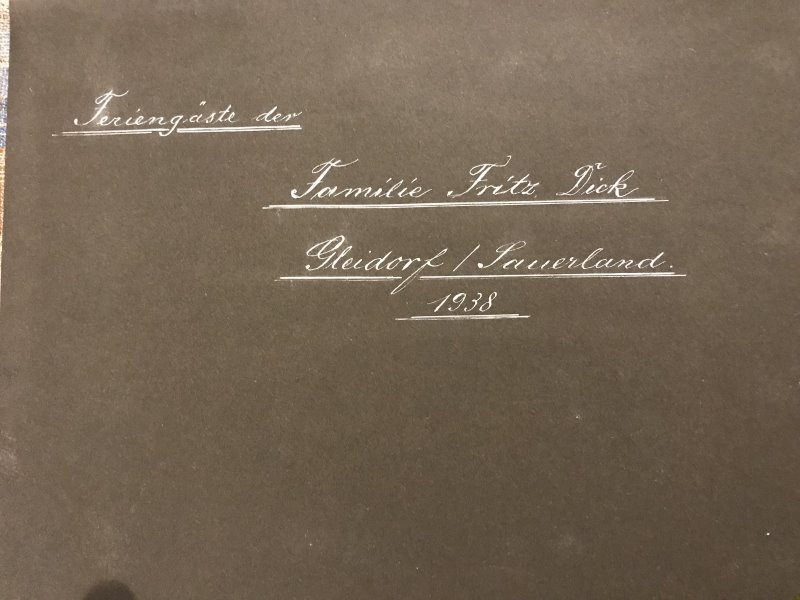 Feriengäste der
Familie Fritz Dick
Gleidorf / Sauerland.
1938